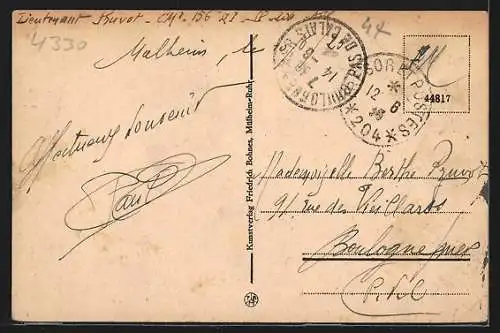 Lieutenant Pruvot - CMᵗ 156 RI - SP 204
4330
47
Malheim, le
Affectueux souvenir
Paul
Kunstverlag Friedrich Bohnes, Mülheim-Ruhr.
BOULOGNE
PAS DE CALAIS
TRESOR ET POSTES
12 8
*204*
44817
Mademoiselle Berthe Pruvot
91 rue des Vieillards
Boulogne s/mer
P.d.C